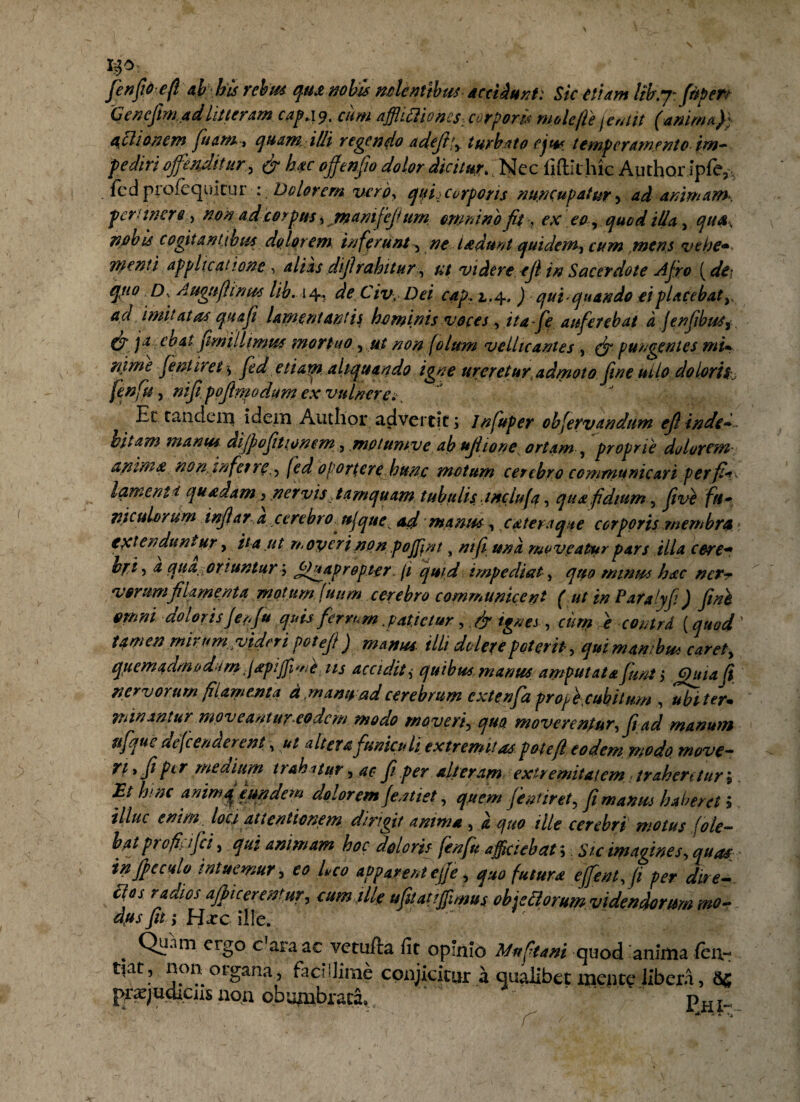 130
ſenſio eſt ab his rebus quæ nobis nolentibus accidunt: Sic etiam lib.7. ſuper
Geneſim ad litteram cap.19. cùm afflictiones corporis moleſtè ſentit (anima)
actionem ſuam, quam illi regendo adeſt, turbato ejus temperamento im-
pediri offenditur, & hæc offenſio dolor dicitur. Nec ſiſtit hic Author ipſe,
ſed proſequitur : Dolorem verò, qui corporis nuncupatur, ad animam
pertinere, non ad corpus, manifeſtum omninò fit, ex eo, quod illa, quæ
nobis cogitantibus dolorem inferunt, ne lædunt quidem, cum mens vehe-
menti applicatione, aliàs diſtrahitur, ut videre eſt in Sacerdote Afro (de
quo D. Auguſtinus lib. 14. de Civ. Dei cap. 24.) qui quando ei placebat,
ad imitatas quaſi lamentantis hominis voces, ita ſe auferebat à ſenſibus,
& jacebat ſimillimus mortuo, ut non ſolum vellicantes, & pungentes mi-
nimè ſentiret, ſed etiam aliquando igne ureretur admoto ſine ullo doloris
ſenſu, niſi poſtmodum ex vulnere.
Et tandem idem Author advertit; Inſuper obſervandum eſt inde-
bitam manus diſpoſitionem, motumve ab uſtione ortam, propriè dolorem
animæ non inferre, ſed oportere hunc motum cerebro communicari per fi-
lamenta quædam, nervis tamquam tubulis incluſa, quæ fidium, ſivè fu-
niculorum inſtar à cerebro uſque ad manus, cæteraque corporis membra
extenduntur, ita ut moveri non poſſint, niſi unà moveatur pars illa cere-
bri, à quâ oriuntur; Quapropter ſi quid impediat, quo minus hæc ner-
vorum filamenta motum ſuum cerebro communicent (ut in Paralyſi) ſinè
omni doloris ſenſu quis ferrum patietur, & ignes, cùm è contrà (quod
tamen mirum videri poteſt) manus illi dolere poterit, qui manibus caret,
quemadmodum ſæpiſſimè iis accidit, quibus manus amputatæ ſunt; Quia ſi
nervorum filamenta à manu ad cerebrum extenſa propè cubitum, ubi ter-
minantur moveantur eodem modo moveri, quo moverentur, ſi ad manum
uſque deſcenderent, ut altera funiculi extremitas poteſt eodem modo move-
ri, ſi per medium trahatur, ac ſi per alteram extremitatem traheretur;
Et hinc anima eundem dolorem ſentiet, quem ſentiret, ſi manus haberet;
illuc enim loci attentionem dirigit anima, à quo ille cerebri motus ſole-
bat proficiſci, qui animam hoc doloris ſenſu afficiebat; Sic imagines, quas
in ſpeculo intuemur, eo loco apparent eſſe, quo futuræ eſſent, ſi per dire-
ctos radios aſpicerentur, cum ille uſitatiſſimus objectorum videndorum mo-
dus ſit; Hæc ille.
Quàm ergo clara ac vetuſta ſit opinio Muſitani quod anima ſen-
tiat, non organa, facillimè conjicitur à qualibet mente liberâ, &
præjudiciis non obumbratâ.
PHI-